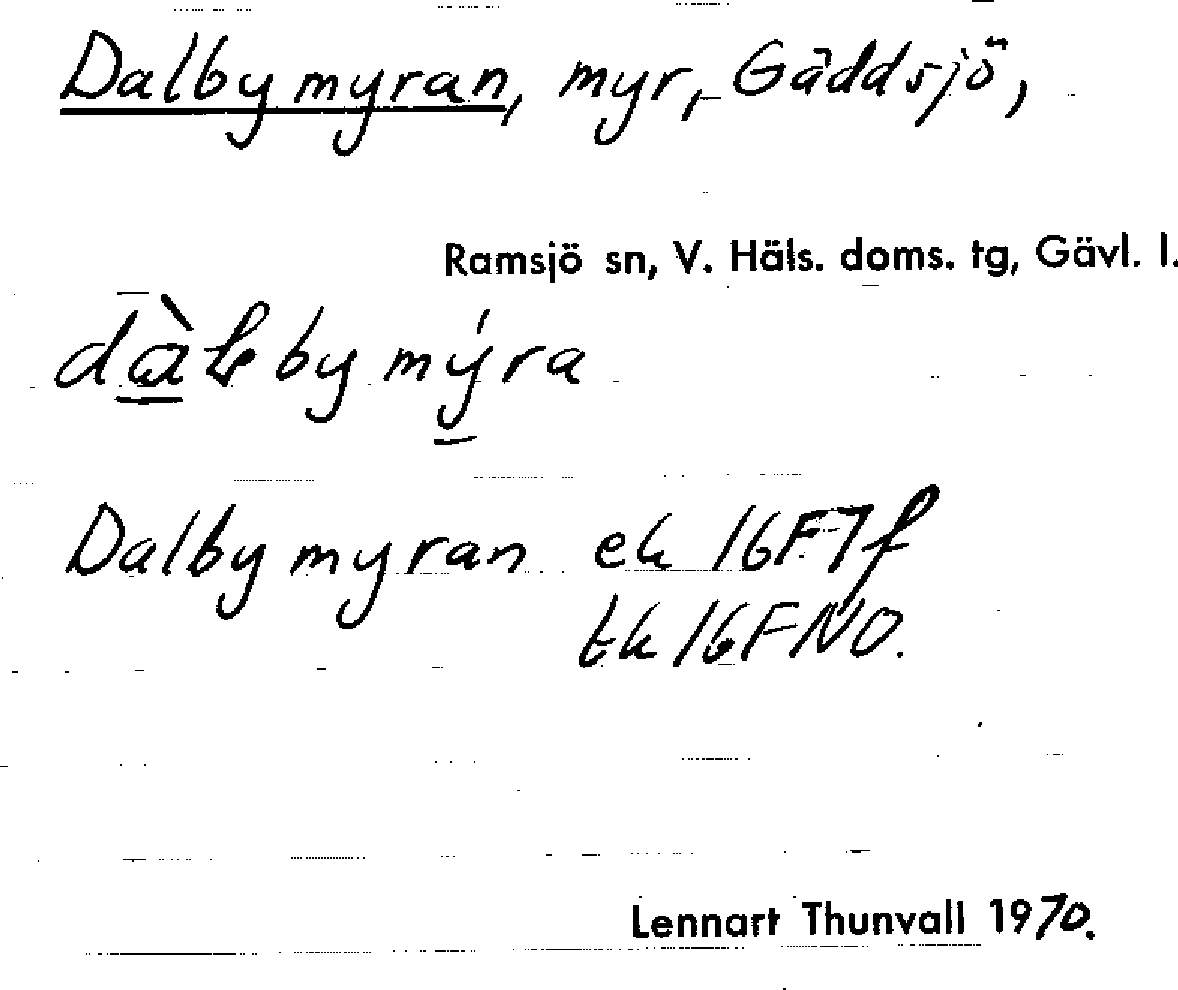 Dalbymyran, myr, Gäddsjö,
Ramsjö sn, V. Häls. doms. tg, Gävl. l.
Dalbymyran ek 16F7f
tk 16FNO.
Lennart Thunvall 1970.